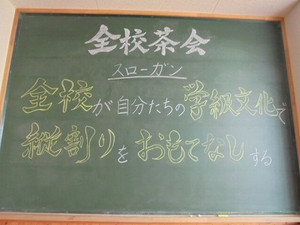 全校茶会
スローガン
全校が自分たちの学級文化で
縦割りをおもてなしする